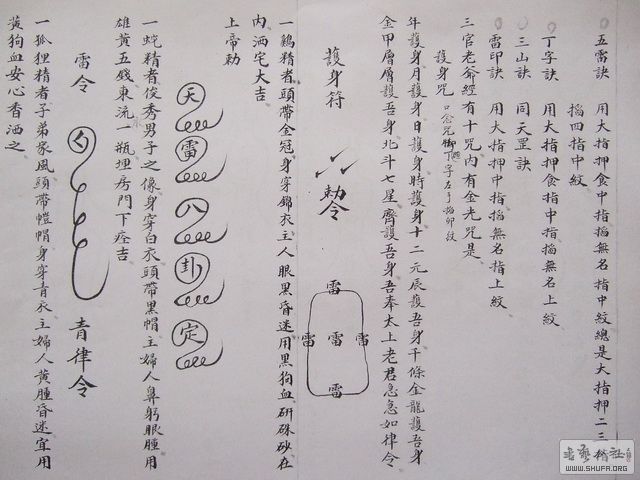 五雷訣　用大指押食中指掐無名指中紋總是大指押二三
掐四指中紋
丁字訣　用大指押食指中指掐無名上紋
三山訣　同天罡訣
雷印訣　用大指押中指掐無名指上紋
三官老爺經有十咒內有金光咒是
護身咒
年護身月護身日護身時護身十二元辰護吾身千條金龍護吾身
金甲層層護吾身北斗七星齊護吾身吾奉太上老君急急如律令
護身符
敕令
雷
雷 雷 雷
雷
一鷄精者頭帶金冠身穿錦衣主人眼黑昏迷用黑狗血研硃砂在
內洒宅大吉
上帝勅
天
雷
八
卦
定
一蛇精者俊秀男子之像身穿白衣頭帶黑帽主婦人鼻躬眼腫用
雄黃五錢東流一瓶埋房門下座吉
雷令
青律令
一狐狸精者子弟家風頭帶檀帽身穿青衣主婦人黃腫昏迷宜用
黃狗血安心香洒之
WWW.SHUFA.ORG